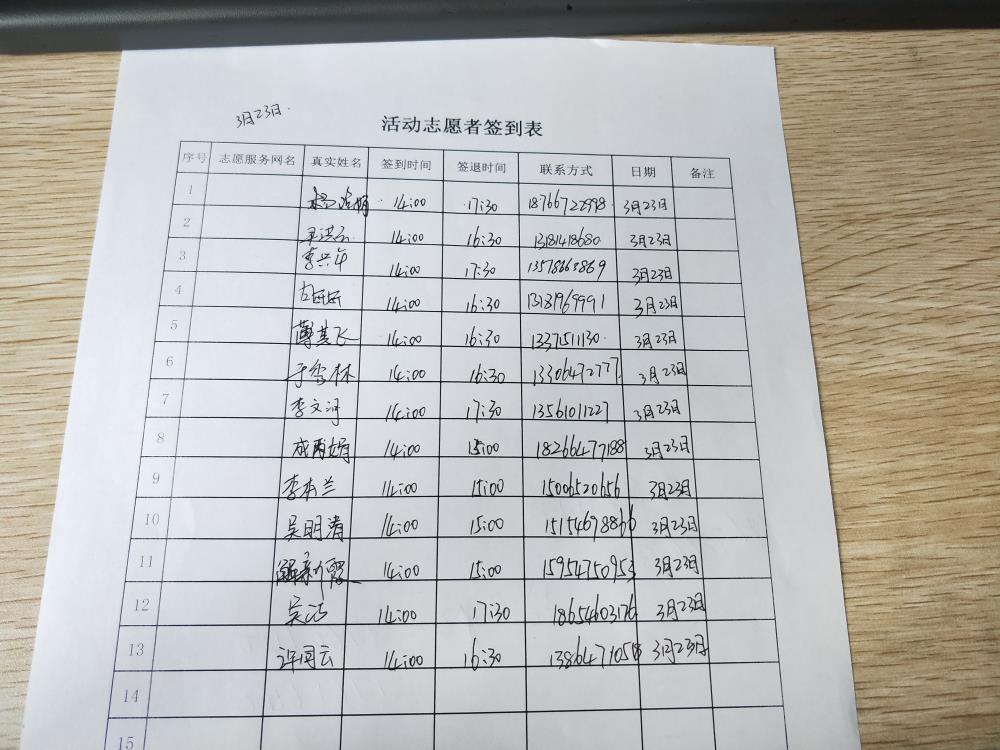 3月23日.
活动志愿者签到表
序号 志愿服务网名 真实姓名 签到时间 签退时间 联系方式 日期 备注
1 14:00 17:30 3月23日
2 14:00 16:30 13181418680 3月23日
3 李兴年 14:00 17:30 3月23日
4 14:00 16:30 13181969991 3月23日
5 薄其飞 14:00 16:30 13375111130 3月23日
6 于雪林 14:00 16:30 13306472777 3月23日
7 李文河 14:00 17:30 13561011227 3月23日
8 成丙娟 14:00 15:00 18266477188 3月23日
9 李本兰 14:00 15:00 15006520656 3月23日
10 吴明清 14:00 15:00 15154678866 3月23日
11 14:00 15:00 15954750953 3月23日
12 吴洁 14:00 17:30 18654603176 3月23日
13 许同云 14:00 16:30 3月23日
14
15